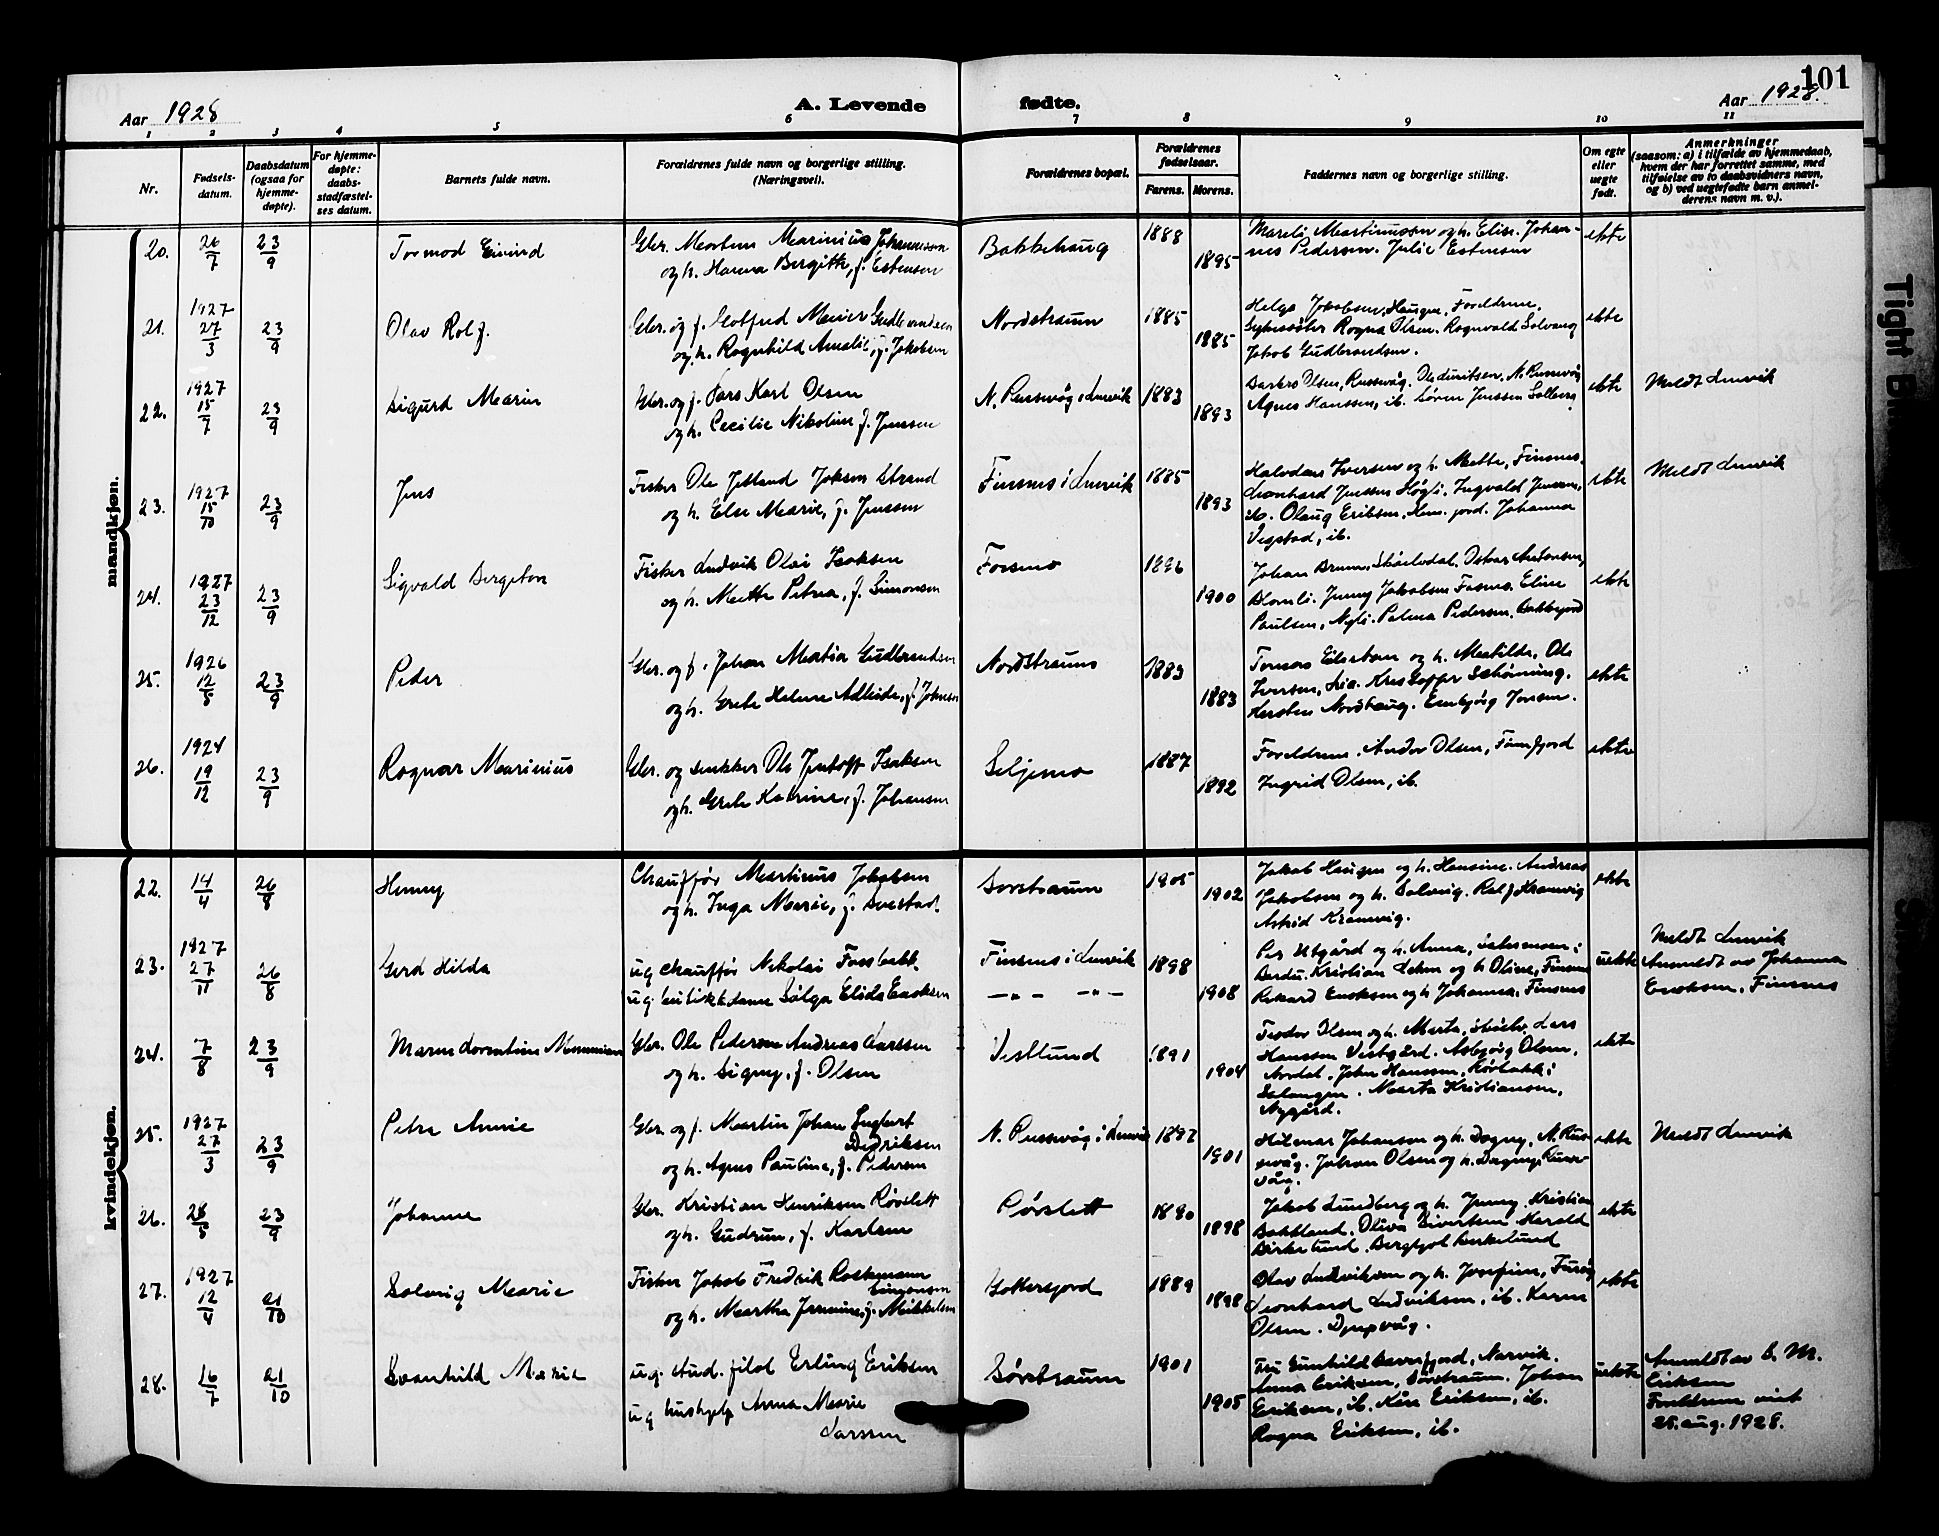 Aar 1928
A. Levende
fødte.
Aar 1928.
101
1 2 3 4 5 6 7 8 9 10 11
Nr.
Fødsels-
datum.
Daabsdatum
(ogsaa for
hjemme-
døpte).
For hjemme-
døpte:
daabs-
stadfæstel-
ses datum.
Barnets fulde navn.
Forældrenes fulde navn og borgerlige stilling.
(Næringsvei).
Forældrenes bopæl.
Forældrenes
fødselsaar.
Farens. Morens.
Faddernes navn og borgerlige stilling.
Om egte
eller
uegte
født.
Anmerkninger
(saasom: a) i tilfælde av hjemmedaab,
hvem der har forrettet samme, med
tilføielse av to daabsvidners navn,
og b) ved uegtefødte barn anmel-
derens navn m. v.).
mandkjøn.
20. 26/7 23/9 Tormod Eivind
Gbr. Mortens Marinius Johannessen
og h. Hanna Bergitte, f. Estensen
Bakkehaug 1888 1895
Martinussen og h. Elise. Johan-
nes Pedersen. Julie Estensen
ekte
21. 1927 27/3 23/9 Olav Rolf.
Gbr. og f. Meier Gudbrandsen
og h. Ragnhild Amalie, f. Jakobsen
Nordstraum 1885 1885
Helga Jakobsen, Haugen, Foreldrene,
Ragna Olsen. Ragnvald Solvang
Jakob Gudbrandsen.
ekte
22. 1927 15/7 23/9 Sigurd Marin
Gbr. og f. Lars Karl Olsen
og h. Cecilie Nikoline f. Jenssen
N. Russevåg i Lenvik 1883 1893
Olsen, Russevåg. N. Russevåg
Agnes Hanssen, ib. Søren Jenssen Solberg.
ekte
Meldt Lenvik
23. 1927 15/10 23/9 Jens
Fisker Ole Jetland Strand
og h. Else Marie, f. Jenssen
Finsnes i Lenvik 1885 1893
Halvdan Iversen og h. Mette, Finsnes.
Leonhard Jenssen Høgli. Ingvald Jensen,
ib. Olaug Eriksen, Johanna
Vegstad, ib.
ekte
Meldt Lenvik
24. 1927 23/12 23/9 Sigvald Bergeton
Fisker Ludvik Olai Isaksen
og h. Mette Petrea, f. Simonsen
Forsmo 1896 1900
Johan Oskar Antonsen,
Jenny Jakobsen Elise
Paulsen, Nyli. Palma Pedersen, Bakkejord
ekte
25. 1926 12/8 23/9 Peder
Gbr. og f. Johan Martin Gudbrandsen
og h. Grete Helene Adleide, f. Johnsen
Nordstraum 1883 1883
og h. Matilde. Ole
Iversen, Schønning.
Nordhaug. Jonsen.
ekte
26. 1924 19/12 23/9 Ragnar Marinius
Gbr. og snekker Ole Jentoft Isaksen
og h. Grete Katrine, f. Johansen
Seljemo 1887 1892
Foreldrene. Andor Olsen,
Ingrid Olsen, ib.
ekte
kvindekjøn.
22. 14/4 26/8 Henny
Chauffør Martinus Jakobsen
og h. Inga Marie, f.
Sørstraum 1905 1902
Jakob Haugen og h. Hansine. Andreas
Jakobsen og h. Solveig. Ralf Kramvig
Astrid Kramvig.
ekte
23. 1927 27/11 26/8 Gerd Hilda
ug chauffør Nikolai Fossbakk.
ug butikkdame Solga Elida Enoksen
Finsnes i Lenvik 1898
—„— —„— 1908
Per Utgård og h. Anna, i
Bardu. Kristian og h Oline, Finsnes
Rikard Enoksen og h Johanna, Finsnes
uekte
Meldt Lenvik
Anmeldt av Johanna
Enoksen, Finsnes
24. 7/8 23/9
Gbr. Ole Pedersen Andreas Larssen
og h. Signy, f. Olsen
Vestlund 1891 1904
Teodor Olsen og h. Marta, Lars
Hanssen Vestgård. Asbjørg Olsen,
John Hanssen,
Salangen. Marta Kristiansen,
Nygård.
ekte
25. 1927 27/3 23/9 Petra Annie
Gbr. og f. Martin Johan Ingbert
Dedriksen
og h. Agnes Pauline, f. Pedersen
N. Russevåg i Lenvik 1892 1901
Hilmar Johansen og h. Dagny, N. Rus-
sevåg. Johan Olsen og h. Dagny, Russe-
våg.
ekte
Meldt Lenvik
26. 28/5 23/9 Johanne
Gbr. Kristian Henriksen Rørslett
og h. Gudrun, f. Karlsen
Rørslett 1890 1898
Jakob Lundberg og h. Jenny. Kristian
Bakkland. Oliva Sivertsen Harald
Birkelund. Bergljot Birkelund
ekte
27. 1927 12/4 21/10 Solveig Marie
Fisker Jakob Fredrik
Simonsen
og h. Martha Jermine, f. Mikkelsen
Gottesjord 1889 1898
Olav Ludviksen og h. Josefine,
Leonhard Ludviksen, ib. Karen
Olsen. Djupvåg.
ekte
28. 16/7 21/10 Svanhild Marie
ug. stud. filol Erling Eriksen
ug hushjelp Anna Marie
Larssen
Sørstraum 1901 1905
Fru Gunhild Narvik.
Anna Eriksen, Sørstraum. Johan
Eriksen, ib. Kåre Eriksen, ib.
Ragna Eriksen, ib.
uekte
Anmeldt av E. M.
Eriksen
Foreldrene viet
25. aug. 1928.
Tight Bi